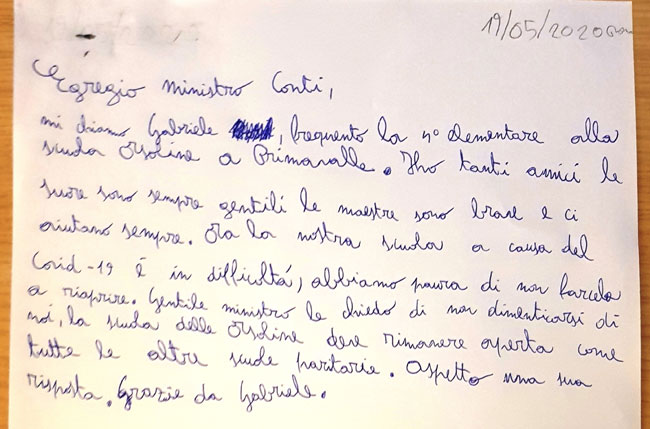 19/05/2020
Egregio ministro Conti,
mi chiamo Gabriele, frequento la 4° elementare alla
scuola Orsoline a Primavalle. Iho tanti amici le
suore sono sempre gentili le maestre sono brave e ci
aiutano sempre. Ora la nostra scuola a causa del
Covid-19 è in difficoltá, abbiamo paura di non farcela
a riaprire. Gentile ministro le chiedo di non dimenticarsi di
noi, la scuola delle Orsoline deve rimanere aperta come
tutte le altre scuole paritarie. Aspetto una sua
risposta. Grazie da Gabriele.